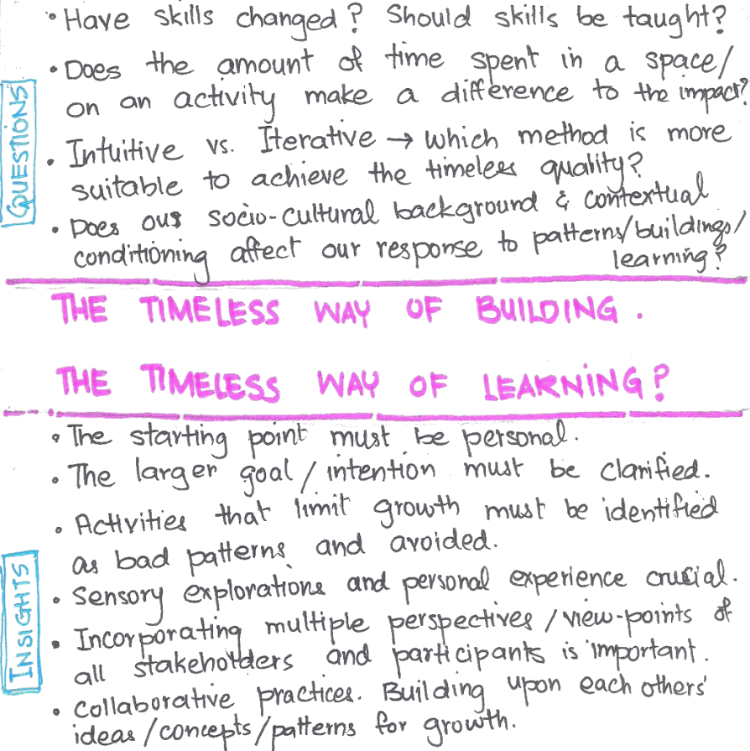 • Have skills changed? Should skills be taught?
• Does the amount of time spent in a space/
on an activity make a difference to the impact?
QUESTIONS
• Intuitive vs. Iterative → which method is more
suitable to achieve the timeless quality?
• Does our socio-cultural background & contextual
conditioning affect our response to patterns/buildings/
learning?
THE TIMELESS WAY OF BUILDING.
THE TIMELESS WAY OF LEARNING?
• The starting point must be personal.
• The larger goal/intention must be clarified.
• Activities that limit growth must be identified
as bad patterns and avoided.
INSIGHTS
• Sensory explorations and personal experience crucial.
• Incorporating multiple perspectives/view-points of
all stakeholders and participants is important.
• Collaborative practices. Building upon each others'
ideas/concepts/patterns for growth.